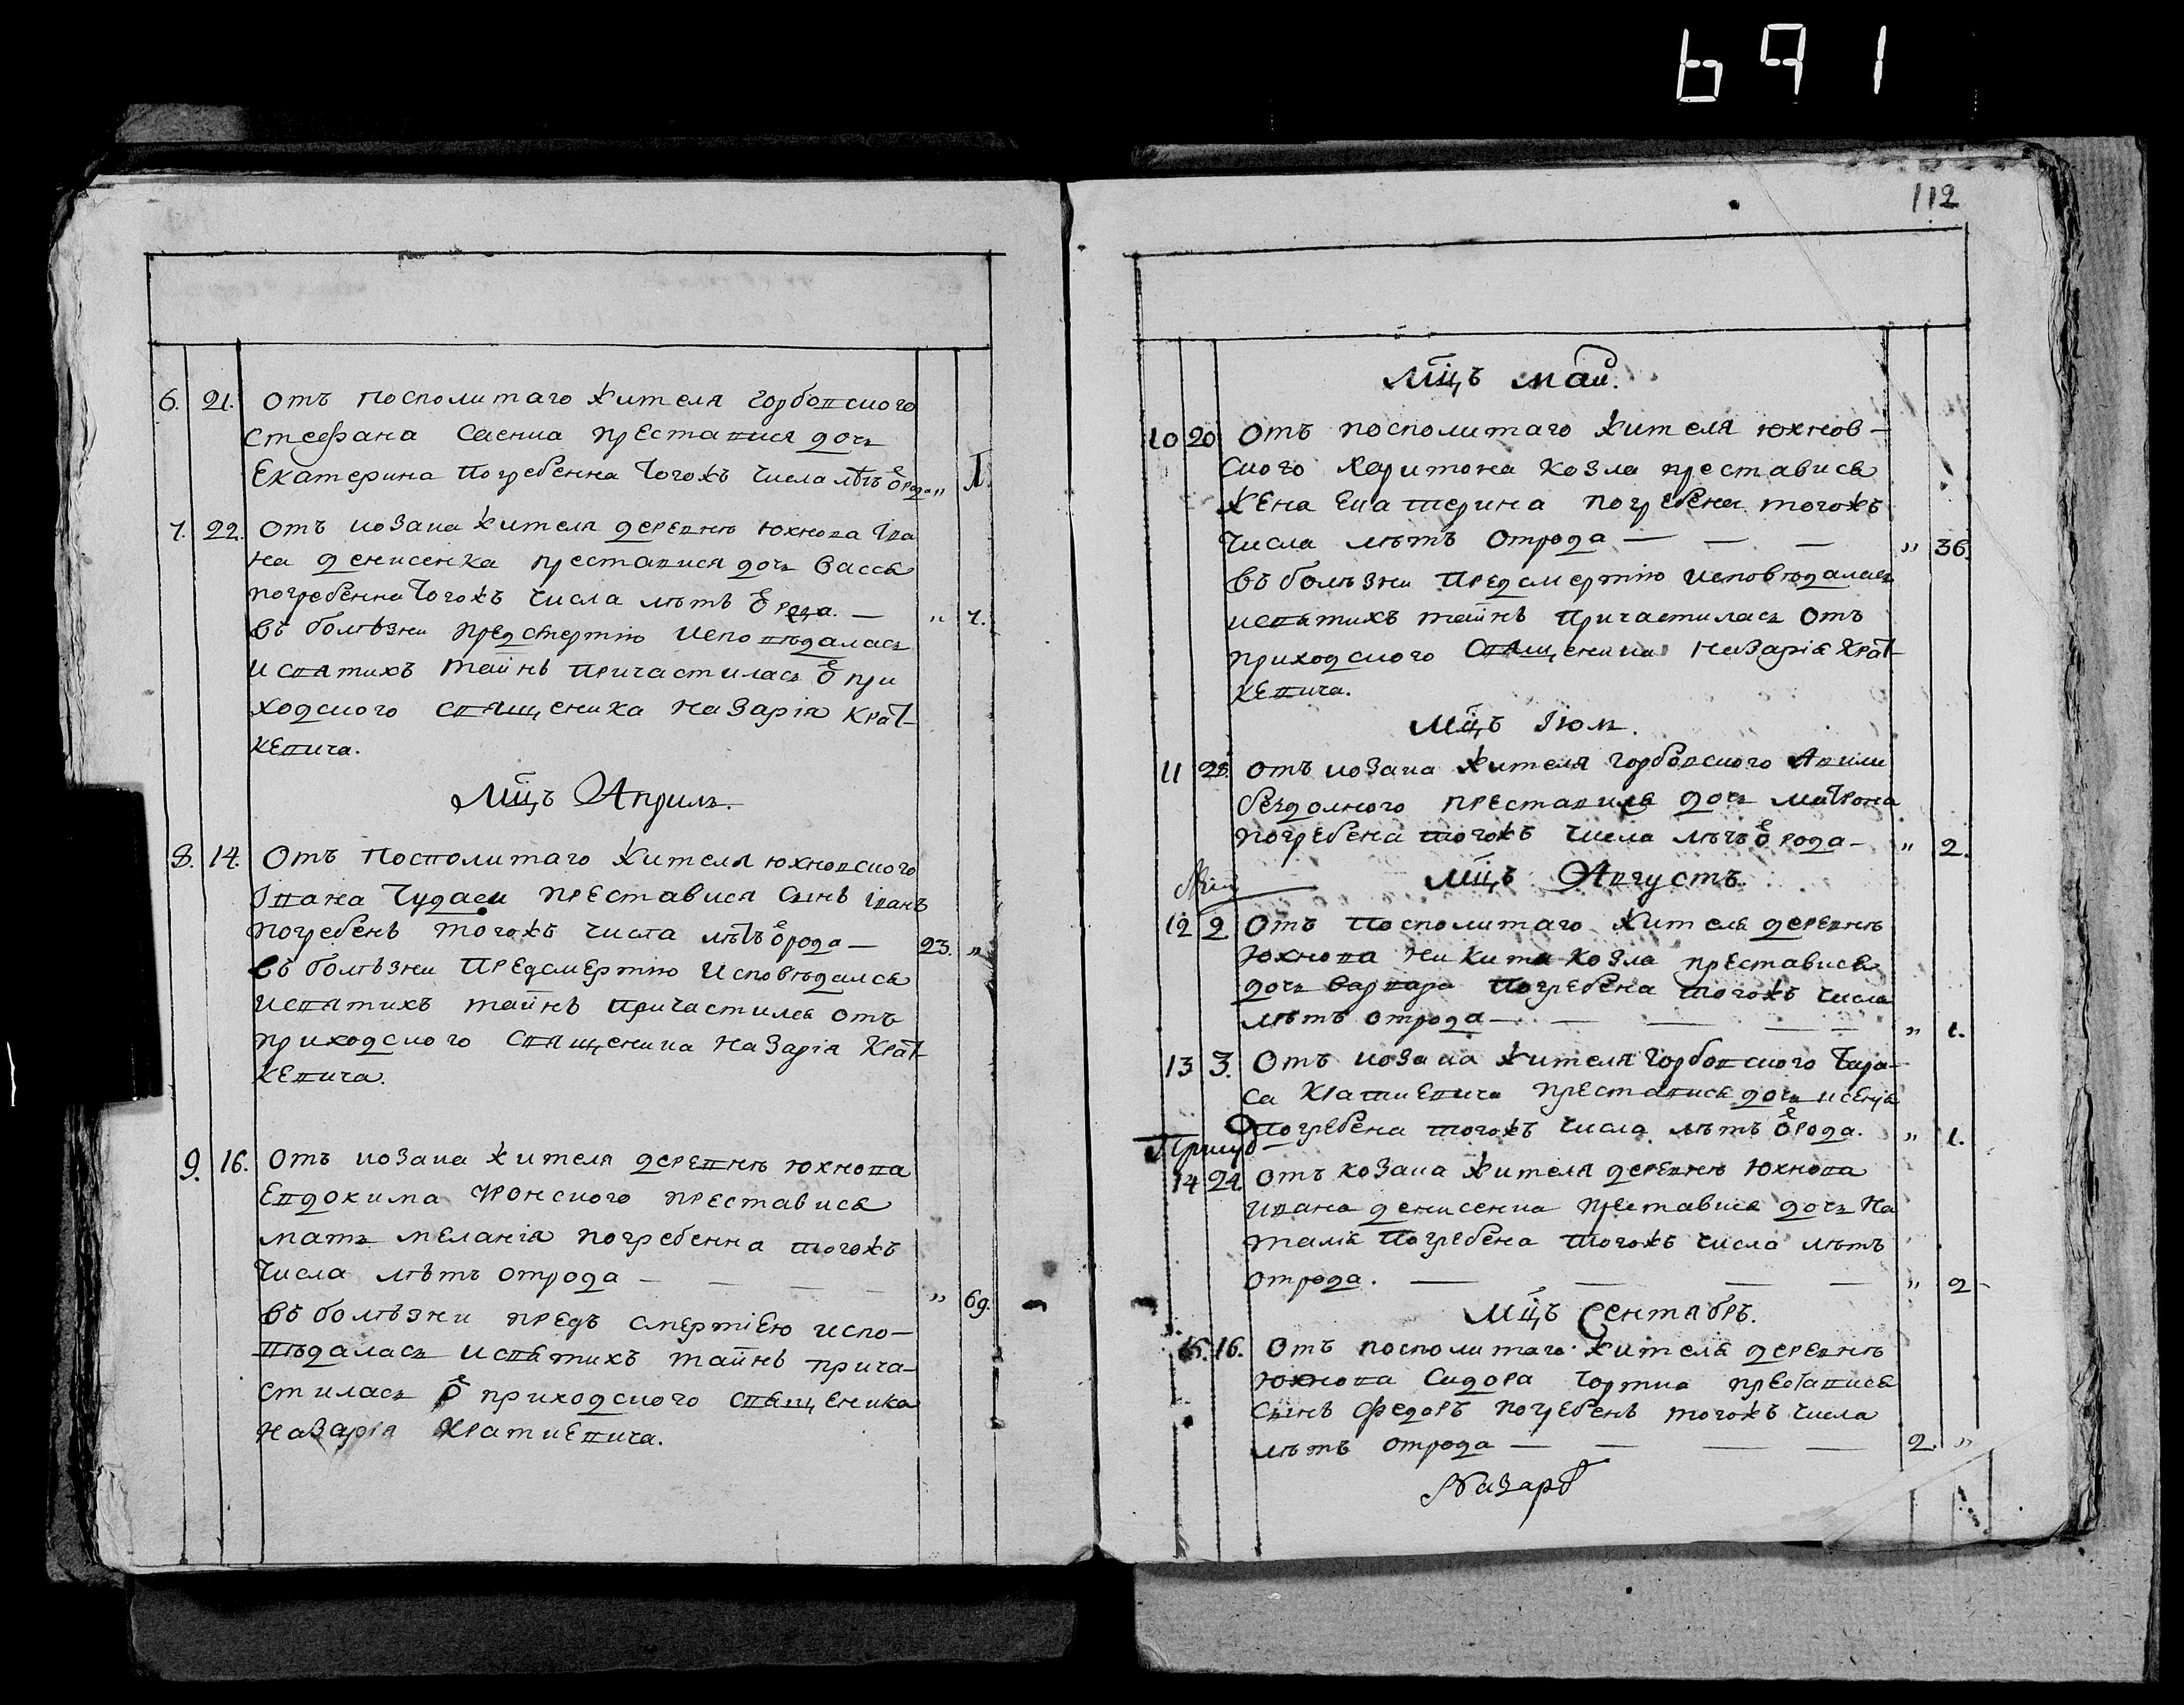 691
112
6. 21. Отъ посполитаго жителя Горбовского
Стефана Саенка преставися дочь
Екатерина погребенна тогожъ числа лѣтъ ѿ рода „
7. 22. Отъ козака жителя деревнѣ Юхнова Іва
на Денисенка преставися дочь Васса
погребенна тогожъ числа лѣтъ ѿ рода. — „ 7.
въ болѣзни предсмертію исповѣдалась
и святихъ тайнъ причастилась ѿ при
ходского священика Назарія Крат
кевича.
Мцъ Априль.
8. 14. Отъ посполитаго жителя Юхновского
Івана преставися сынъ Іванъ
погребенъ тогожъ числа лѣтъ ѿ рода — 23. „
въ болѣзни предсмертію исповѣдался
и святихъ тайнъ причастился отъ
приходского священика Назарія Крат
кевича.
9. 16. Отъ козака жителя деревнѣ Юхнова
Евдокима преставися
мать Меланія погребенна тогожъ
числа лѣтъ отрода — — — — „ 69.
въ болѣзни предъ смертіею испо-
вѣдалась и святихъ тайнъ прича-
стилась ѿ приходского священика
Назарія Краткевича.
Мцъ май.
10 20 Отъ посполитаго жителя Юхнов-
ского Харитона Козла преставися
жена Екатерина погребена тогожъ
числа лѣтъ отрода — — — „ 36.
въ болѣзни предсмертію исповѣдалась
и святихъ тайнъ причастилась отъ
приходского священика Назарія Крат
кевича.
Мцъ Іюль.
11 28. Отъ козака жителя Горбовского
преставися дочь Матрона
погребена тогожъ числа лѣтъ ѿ рода — „ 2.
Мцъ Августъ.
12 2 Отъ посполитаго жителя деревнѣ
Юхнова Никити Козла преставися
дочь Варвара погребена тогожъ числа
лѣтъ отрода — — — — — „ 1.
13 3. Отъ козака жителя Горбовского Тара-
са Краткевича преставися дочь Ксенія
погребена тогожъ числа лѣтъ ѿ рода. „ 1.
14 24. Отъ козака жителя деревнѣ Юхнова
Ивана Денисенка преставися дочь На
талія погребена тогожъ числа лѣтъ
отрода. — — — — „ 2
Мцъ Сентабръ.
15. 16. Отъ посполитаго жителя деревнѣ
Юхнова Сидора преставися
сынъ Федоръ погребенъ тогожъ числа
лѣтъ отрода — — — — 2. „